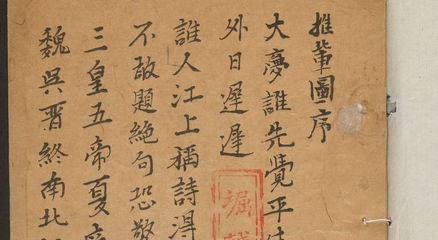 推輩圖序
大夢誰先覺平
外日遲遲
誰人江上稱詩
不敢題絕句恐
三皇五帝夏
魏吳晋終南北
堀